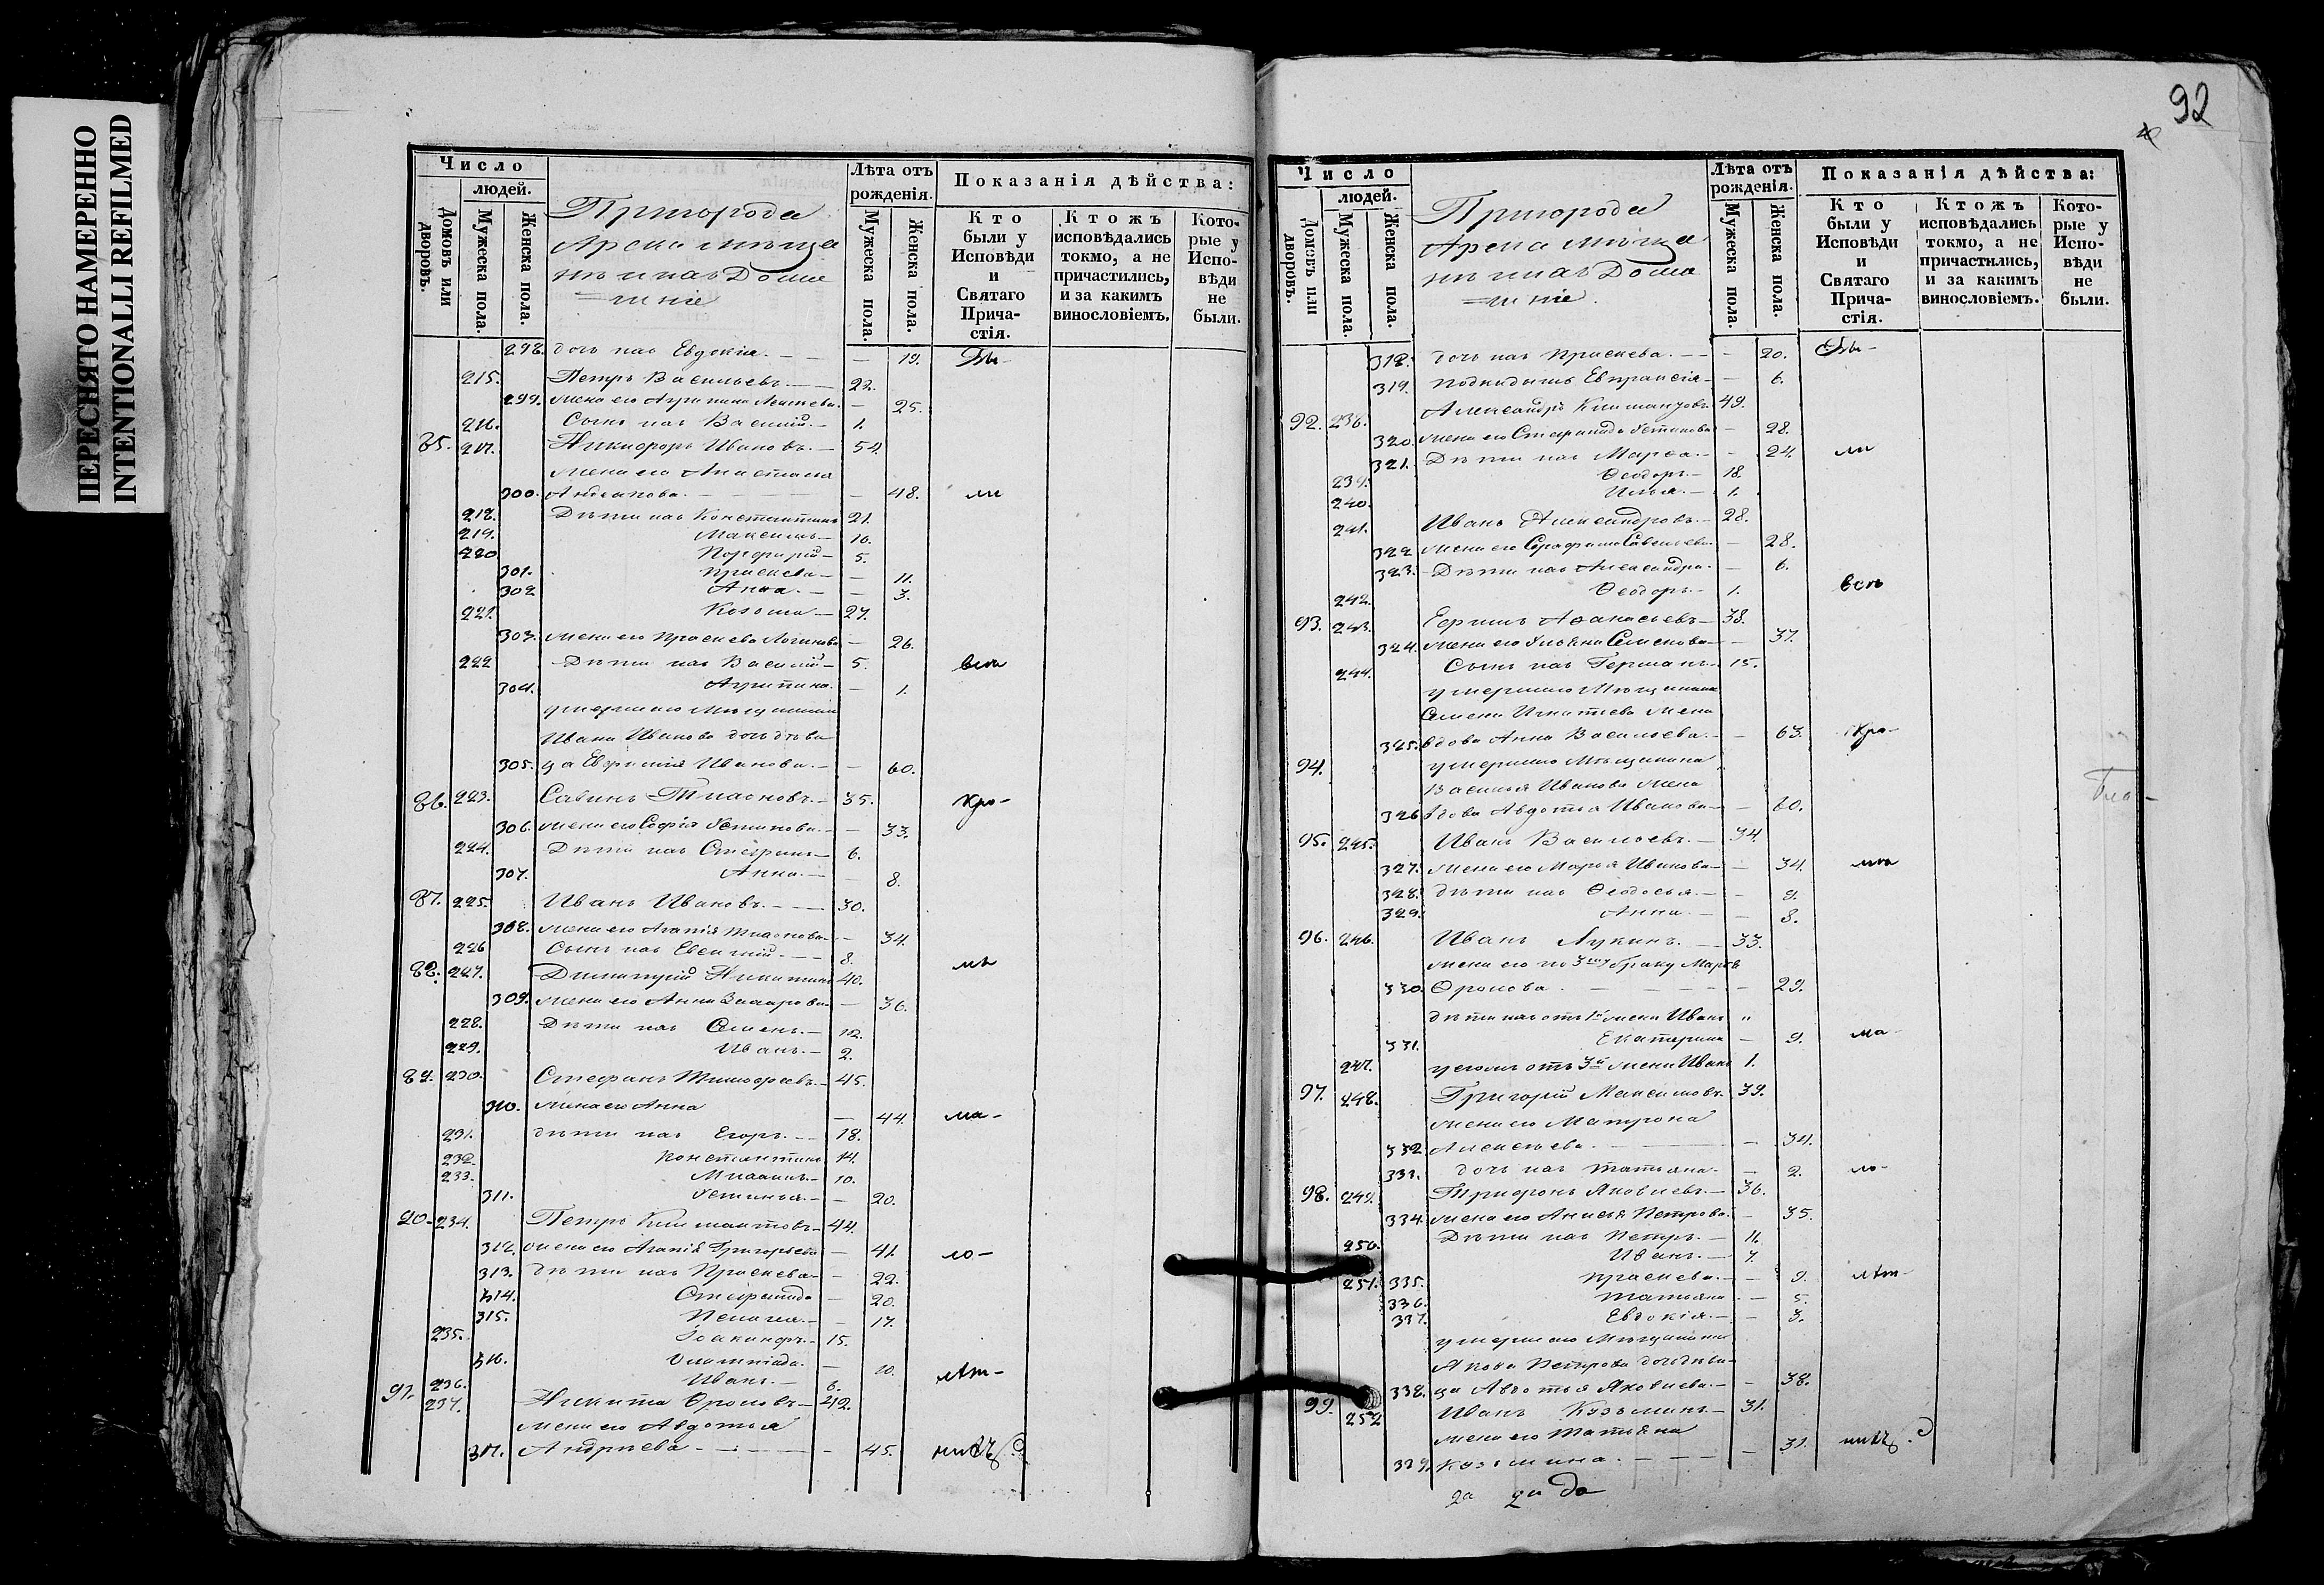 ПЕРЕСНЯТО НАМЕРЕННО
INTENTIONALLI REFILMED
Число
людей.
Домовъ или дворовъ.
Мужеска пола.
Женска пола.
Пригорода
Арска мѣща
не и ихъ Дома
=шніе
Лѣта отъ рожденія.
Мужеска пола.
Женска пола.
Показанія дѣйства:
Кто были у Исповѣди и Святаго Прича-стія.
Ктожъ исповѣдались токмо, а не причастились, и за какимъ винословіемъ.
Кото-рые у Испо-вѣди не были.
298. дочь ихъ Евдокія. — 19. Бы-
215. Петръ Васильевъ. — 22.
299. жена его Агрипина — 25.
216. Сынъ ихъ Василій. — 1.
85. 217. Никифоръ Ивановъ. — 54.
жена его Анастасія
300. — 48. ли
218. Дѣти ихъ Константинъ 21.
219. Максимъ — 10.
220 Порфирій — 5.
301. Праскева — 11.
302 Анна. — 3.
221. Козьма — 27.
303. жена его Праскева Логинова — 26.
222 Дѣти ихъ Василій — 5. всѣ
304. Агрипина. — 1.
умершаго Мѣщанина
Ивана Иванова дочь дѣви
305. ца Евфимія Иванова. — 60.
86. 223. Савинъ — 35. Кро-
306. жена его Софія Устинова. — 33.
224. Дѣти ихъ Стефанъ — 6.
307. Анна. — 8.
87. 225. Иванъ Ивановъ. — 30.
308. жена его Агапія — 34.
226 Сынъ ихъ Евгеній. — 8.
88. 227. Димитрій Никитинъ 40. мѣ
309. жена его Анна Захарова — 36.
228. Дѣти ихъ Семенъ. — 12.
229. Иванъ. — 2.
89. 230. Стефанъ Тимофеевъ. — 45.
310. жена его Анна — 44. ма-
231. дѣти ихъ Егоръ. — 18.
232. Константинъ 14.
233. Михаилъ — 10.
311. Устинья. — 20.
90. 234. Петръ Климантовъ — 44.
312. жена его Агапія Григорьева — 41. ло-
313. дѣти ихъ Праскева — 22.
314. Стефанида — 20.
315. Пелагея. — 17.
235. Іоакинфъ. — 15.
316. Олимпіада. — 10. лѣт-
236. Иванъ. — 6.
91. 237. Никита Фроловъ — 42.
жена его Авдотья
317. Андреева — 45.
92
Число
людей.
Домовъ или дворовъ.
Мужеска пола.
Женска пола.
Пригорода
Арска мѣща
не и ихъ Дома
=шніе.
Лѣта отъ рожденія.
Мужеска пола.
Женска пола.
Показанія дѣйства:
Кто были у Исповѣди и Святаго Прича-стія.
Ктожъ исповѣдались токмо, а не причастились, и за какимъ винословіемъ.
Кото-рые у Испо-вѣди не были.
318. дочь ихъ Праскева. — 20. Бы-
319. Подкидышъ Евпраксія — 6.
92. 238. Александръ Климантовъ 49.
320. жена его Стефанида Устинова — 28.
321. Дѣти ихъ Марѳа. — 24. ли
239. Ѳеодоръ — 18.
240. Илья. — 1.
241. Иванъ Александровъ. — 28.
322 жена его Серафима Савельева — 28.
323. Дѣти ихъ Александра. — 6.
242. Ѳеодоръ — 1. всѣ
93. 243. Ефимъ Аѳанасьевъ — 38.
324. жена его Ульяна Семенова — 37.
244. Сынъ ихъ Германъ. — 15.
умершаго Мѣщанина
Семена Игнатьева жена
325. вдова Анна Васильева. — 63. Кро-
94. умершаго Мѣщанина
Василья Иванова жена
326 вдова Авдотья Иванова — 60.
95. 245. Иванъ Васильевъ. — 34.
327. жена его Марья Иванова — 34. мѣ
328. дѣти ихъ Ѳеодосья. — 9.
329. Анна. — 8.
96. 246. Иванъ Лукинъ. — 33.
жена его по 3му браку Марѳа
330. Фролова. — 29.
дѣти ихъ отъ 1й жены Иванъ "
331. Екатерина — 9. ма-
247. отъ 3й жены Иванъ 1.
97. 248. Григорій Максимовъ. 39.
жена его Матрона
332 Алексеева. — 34.
333. дочь ихъ Татьяна. — 2. ло-
98. 249. Трифонъ Яковлевъ. — 36.
334. жена его Анисья Петрова. — 35.
250. Дѣти ихъ Петръ. — 11.
Иванъ. — 7.
251. 335. Праскева. — 9. лѣт-
336. Татьяна — 5.
337. Евдокія. — 3.
умершаго Мѣщанина
Якова Петрова дочь дѣви-
338. ца Авдотья Яковлева. — 38.
99. 252 Иванъ Козьминъ — 31.
жена его Татьяна
339. Козьмина. — 31.